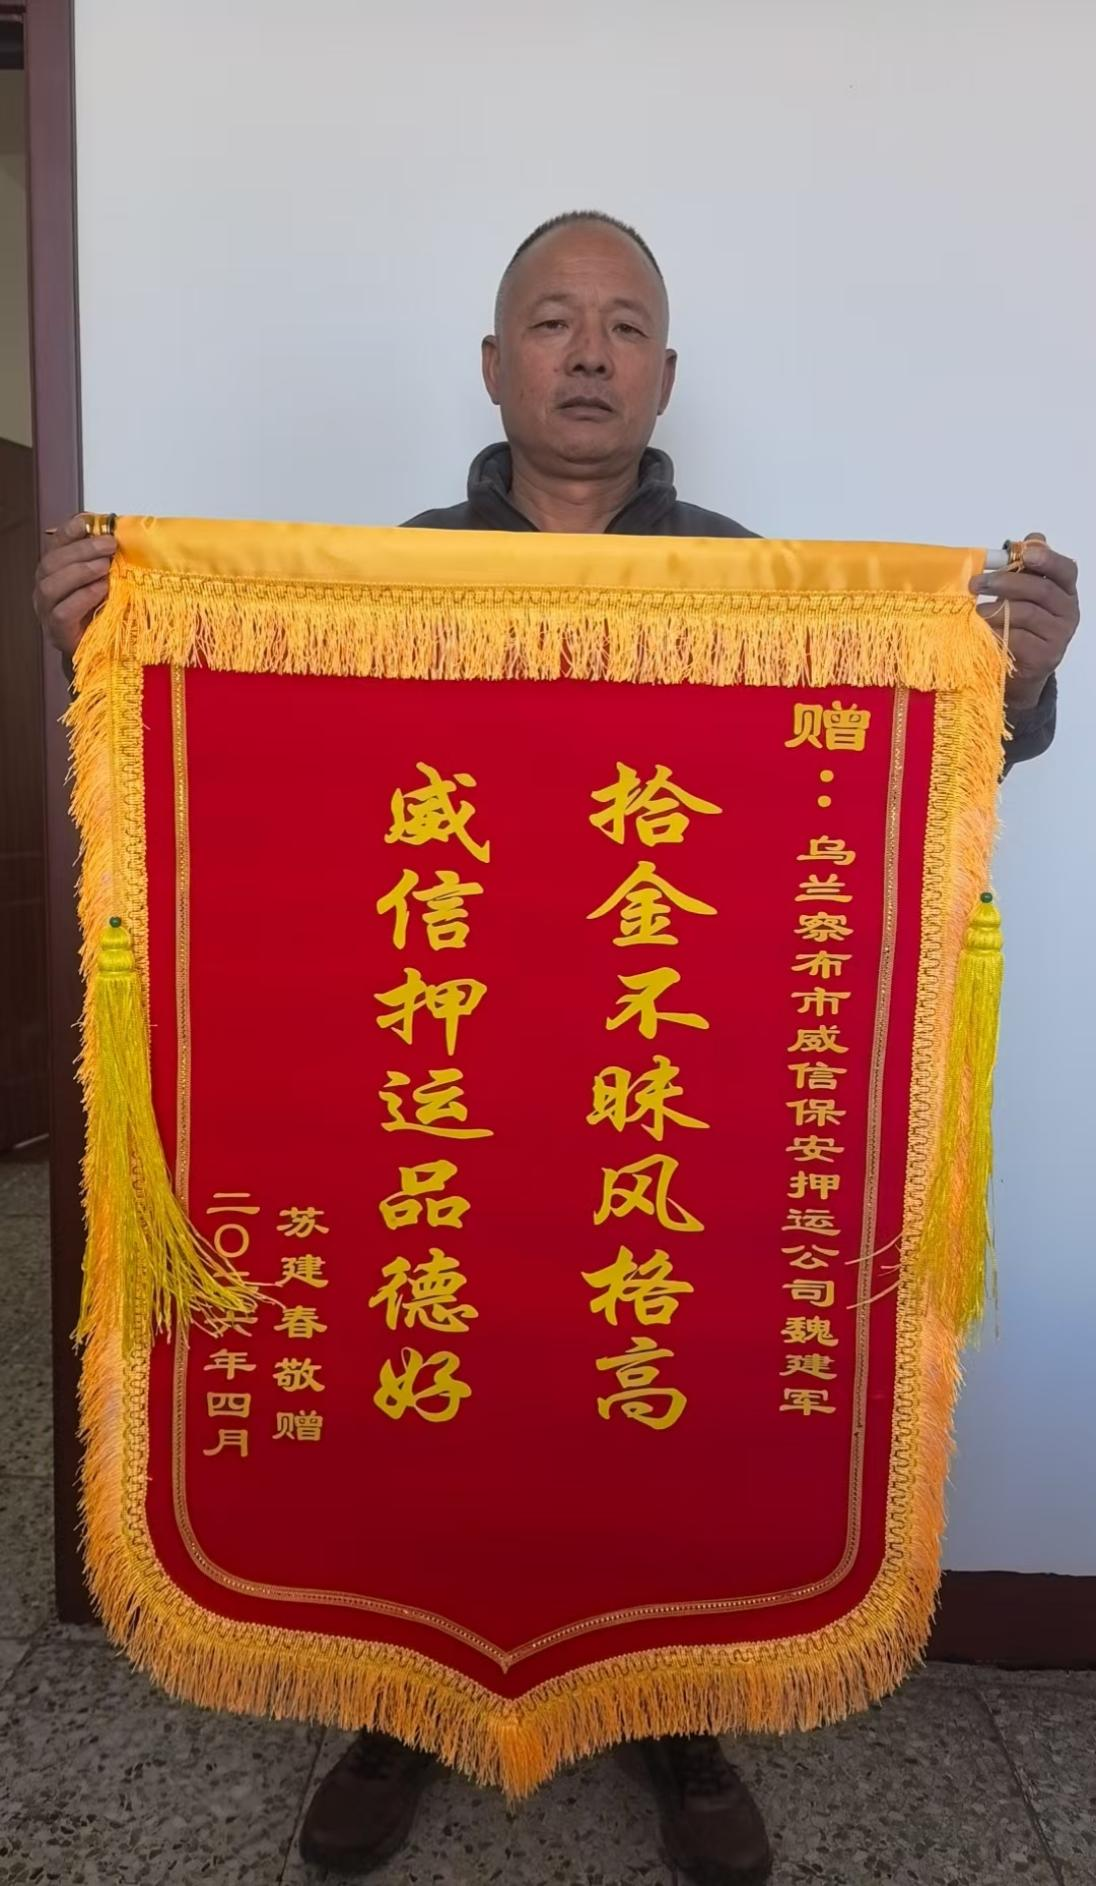 赠：乌兰察布市威信保安押运公司魏建军
拾金不昧风格高
威信押运品德好
苏建春敬赠
二〇二六年四月